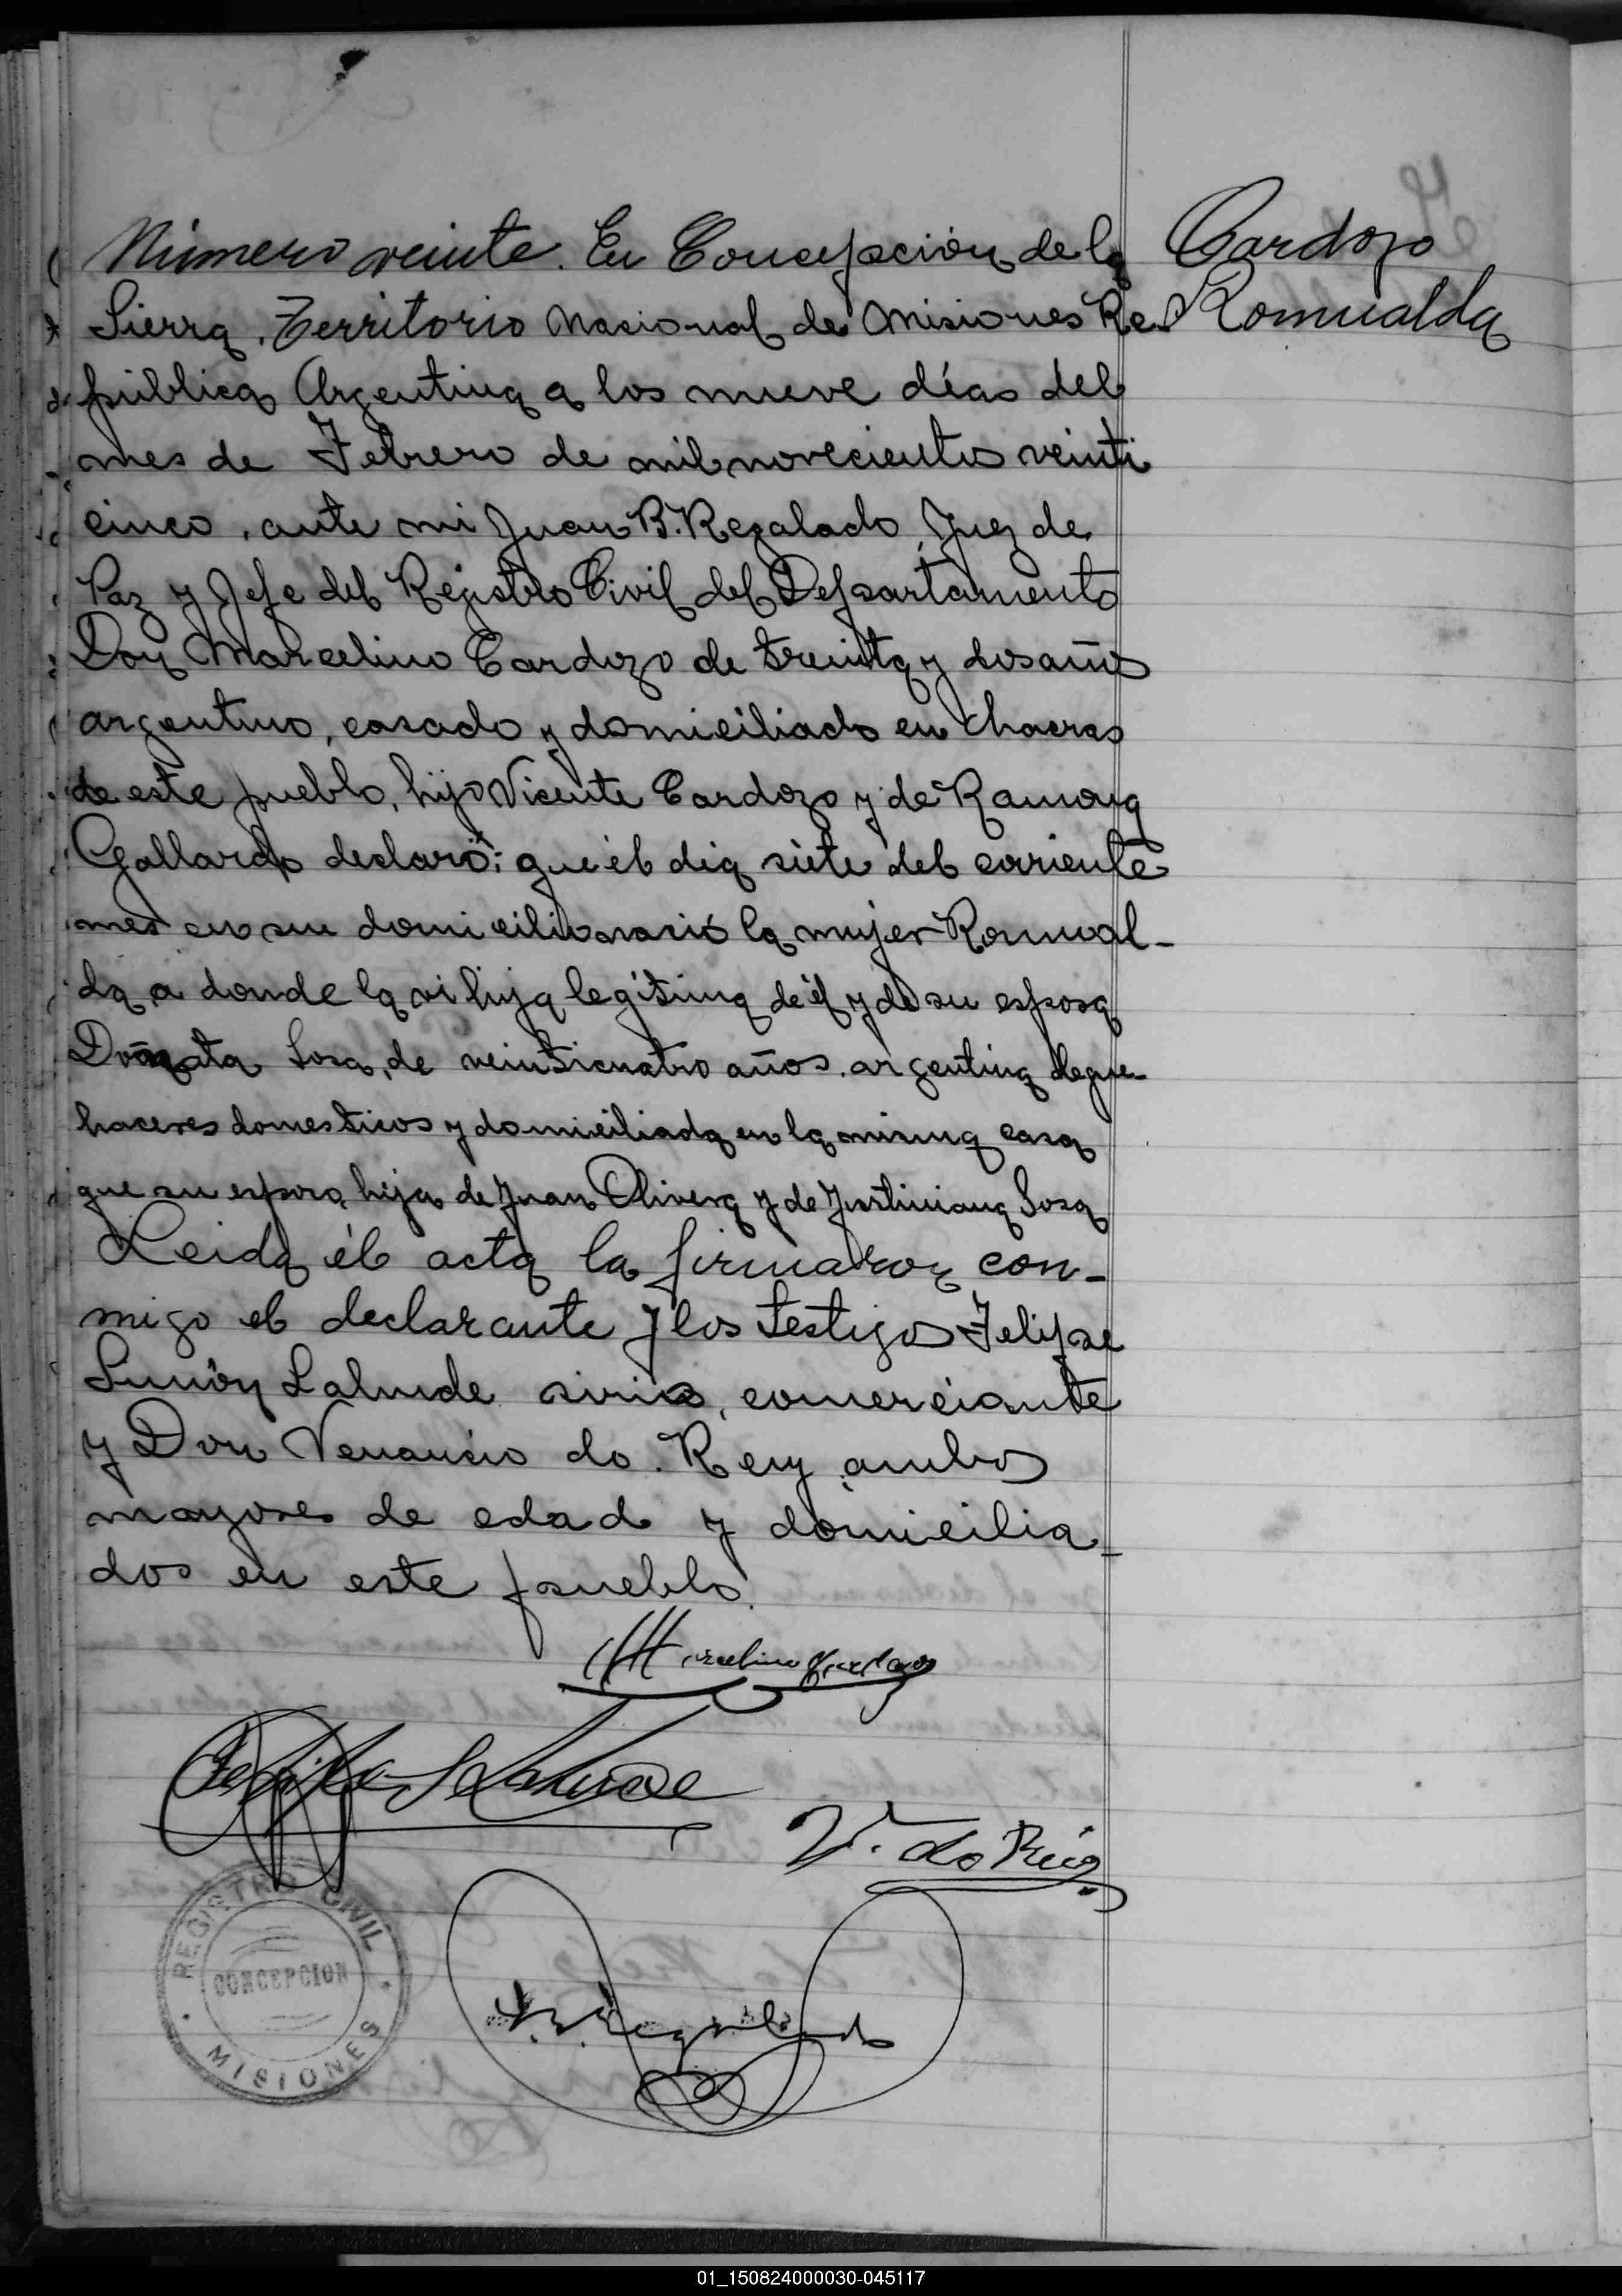 Cardozo
Romualda
Número veinte. En Concepción de la
Sierra, Territorio Nacional de Misiones Re
pública Argentina a los nueve días del
mes de Febrero de mil novecientos veinti
cinco, ante mi Juan B. Regalado, Juez de
Paz y Jefe del Registro Civil del Departamento
Don Marcelino Cardozo de treinta y dos años
argentino, casado y domiciliado en chacras
de este pueblo, hijo Vicente Cardozo y de Ramona
Gallardo declaró: que él dia siete del corriente
mes en su domicilio nació la mujer Romual-
da a donde la vi hija legítima de él y de su esposa
Donata Sosa, de veinticuatro años, argentina de que-
haceres domesticos y domiciliada en la misma casa
que su esposo, hija de Juan Olivera y de Justiniana Sosa
Leida él acta la firmaron con-
migo el declarante y los testigos Felipe
Simón Lalude sirio, comerciante
y Don Venancio do. Rey ambos
mayores de edad y domicilia-
dos en este pueblo.
Marcelino Cardozo
V. do Rey
REGISTRO CIVIL
CONCEPCION
MISIONES
Regalado
01_150824000030-045117